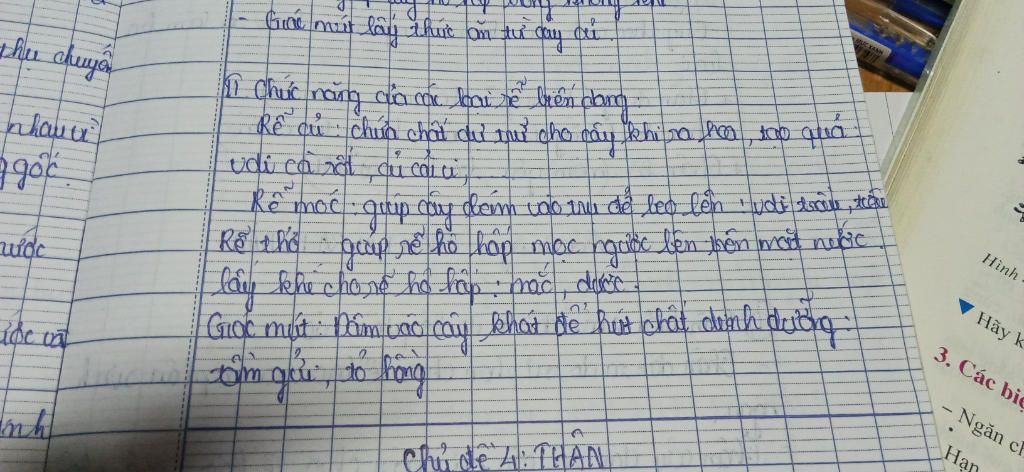 - Giác mút lấy thức ăn từ cây củ.
phụ chuyển
II Chức năng của các loại rễ biến dạng.
nhau từ
Rễ củ: chứa chất dự trữ cho cây khi ra hoa, tạo quả.
gốc.
vd: cà rốt, củ cải,
Rễ móc: giúp cây bám vào trụ để leo lên: vd: trầu, tiêu
nước
Rễ thở: giúp rễ hô hấp mọc ngược lên trên mặt nước.
lấy khí cho rễ hô hấp: mắc, đước.
Giác mút: Đâm vào cây khát để hút chất dinh dưỡng:
tầm gửi, tơ hồng
Chủ đề 4: THÂN
Hình
Hãy k
3. Các biệ
- Ngăn ch
Hạn